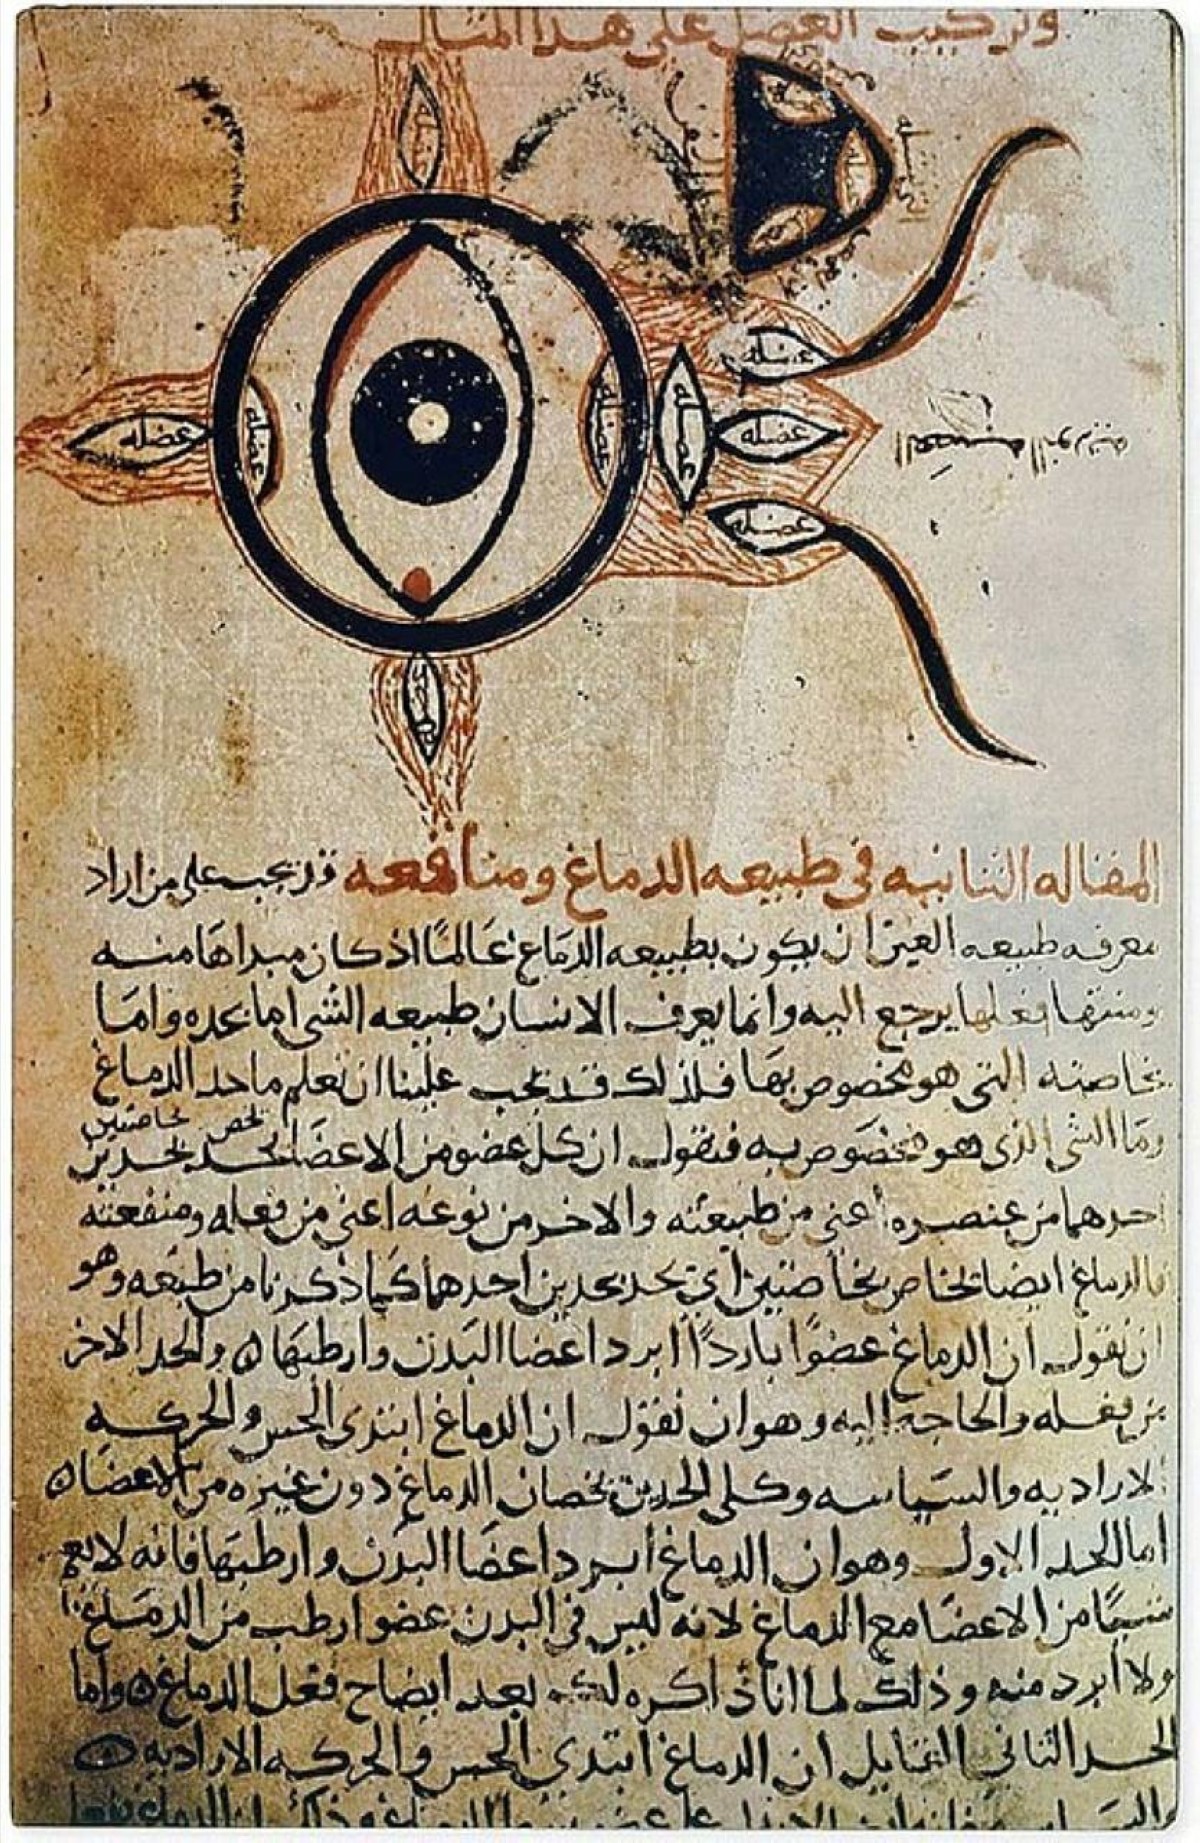 وتركيب العضل على هذا المثال
عضله
عضله
عضله
عضله
عضله
عضله
عضله
عضله
المقاله الثانيه في طبيعه الدماغ ومنافعه قد يجب على من اراد
معرفه طبيعه العين ان يكون بطبيعه الدماغ عالمًا اذ كان مبداها منه
ومنتهى فعلها يرجع اليه وانما يعرف الانسان طبيعه الشى اما بحده واما
بخاصته التى هو مخصوص بها فلذلك قد يجب علينا ان نعلم ما حد الدماغ
وما الشى الذى هو مخصوص به فنقول ان كل عضو من الاعضا يحد بحدين
يخص بخاصتين
احدهما من عنصره اعنى من طبيعته والاخر من نوعه اعنى من فعله ومنفعته
فالدماغ ايضا يخاص بخاصتين اى يحد بحدين احدهما كما ذكرنا من طبيعه وهو
ان نقول ان الدماغ عضوًا باردًا ابرد اعضا البدن وارطبها ه والحد الاخر
من فعله والحاجه اليه وهو ان نقول ان الدماغ ابتدى الحس والحركه
الاراديه والسياسه وكلى الحدين يخصان الدماغ دون غيره من الاعضا ه
اما الحد الاول وهو ان الدماغ ابرد اعضا البدن وارطبها فانه لا يعم
شيًا من الاعضا مع الدماغ لانه ليس فى البدن عضو ارطب من الدماغ
ولا ابرد منه وذلك لما انا ذاكره لك بعد ايضاح فعل الدماغ ه واما
الحد الثانى القايل ان الدماغ ابتدى الحس والحركه الاراديه ه